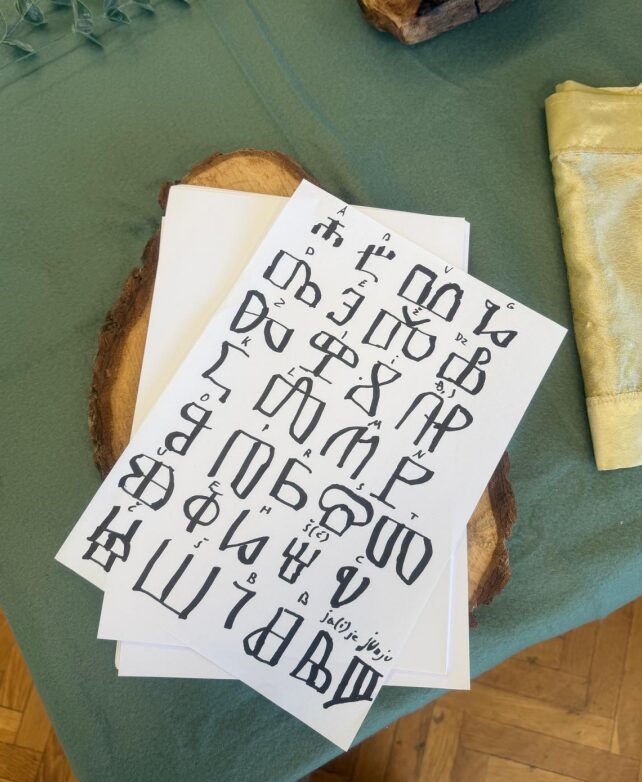 A B V G
Ⰰ Ⰱ Ⰲ Ⰳ
D E Ž DZ
Ⰴ Ⰵ Ⰶ Ⰷ
Z I i Đ, J
Ⰸ Ⰹ Ⰺ Ⰼ
K L M N
Ⰽ Ⰾ Ⰿ Ⱀ
O P R S T
Ⱁ Ⱂ Ⱃ Ⱄ Ⱅ
U F H Š(ć) C
Ⱆ Ⱇ Ⱈ Ⱋ Ⱌ
Č Š ja(i)je ju
Ⱍ Ⱎ Ⱑ Ⱓ